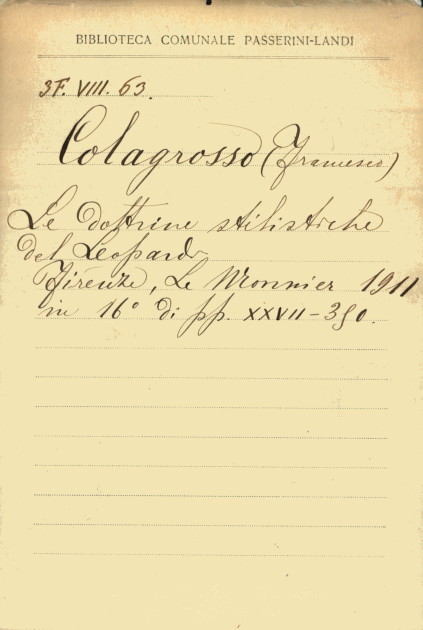 BIBLIOTECA COMUNALE PASSERINI-LANDI
3F. VIII. 63.
Colagrosso (Francesco)
Le dottrine stilistiche
del Leopardi
Firenze, Le Monnier 1911
in 16° di pp. XXVII - 350.